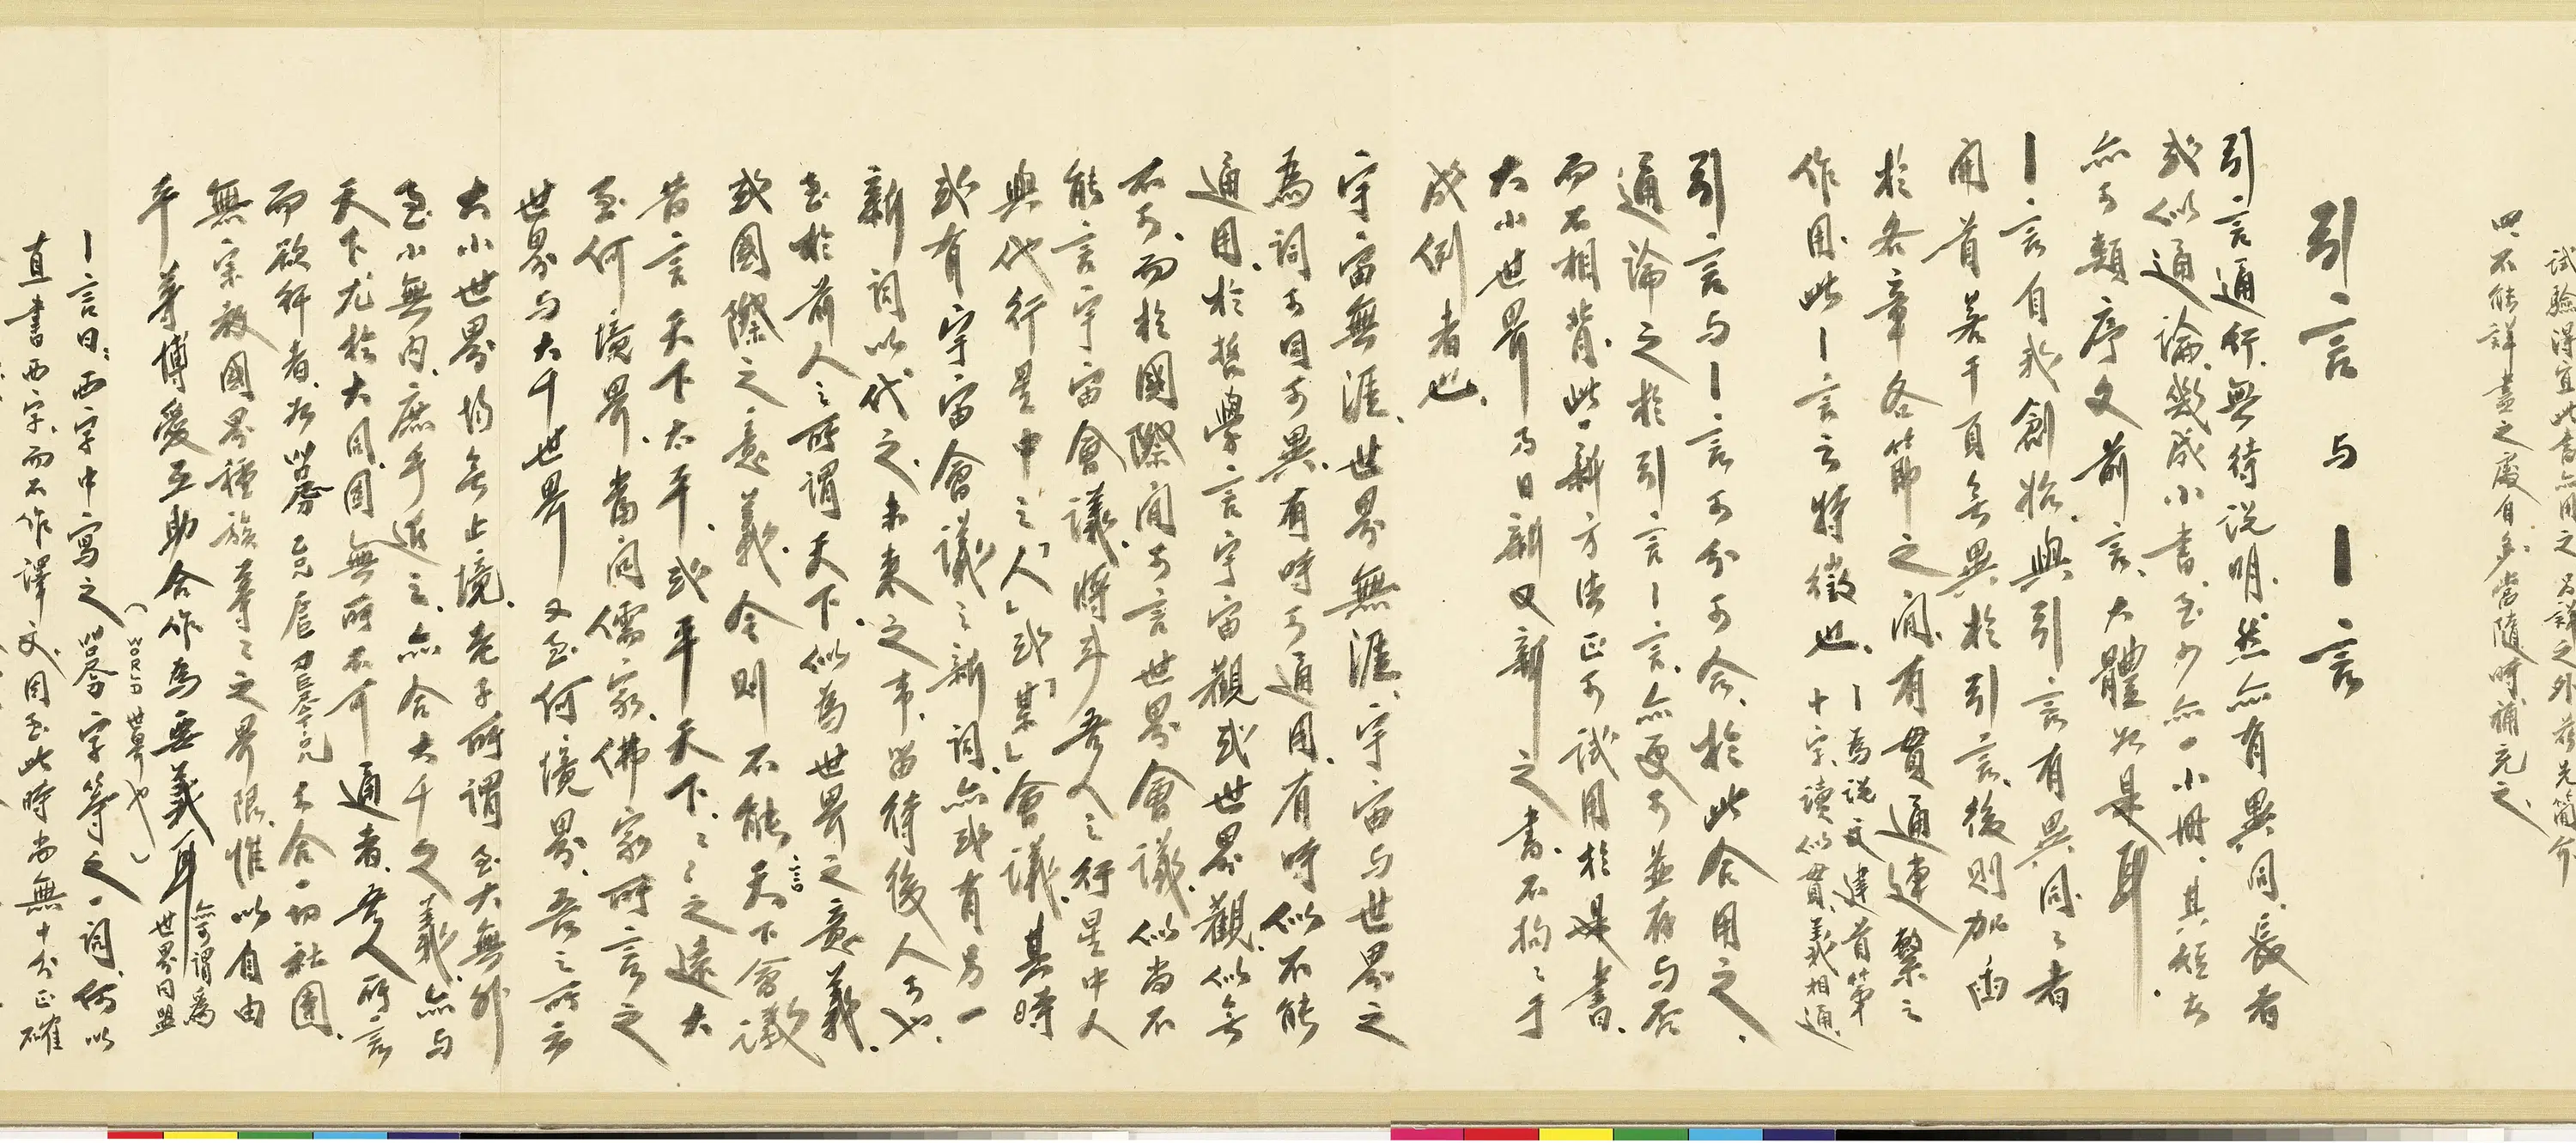 試驗得宜此書亦用之另詳之外茲先簡介
四、不能詳盡之處自多當隨時補充之、
引言与丨言
引言通行、無待說明、然亦有異同、長者
或似通論、幾成小書、至少亦一小冊、其短者
亦可類序文前言、大體如是耳
丨言自我創始、與引言有異同、異者
用首若干頁無異於引言、後則加插
於各章各節之間、有貫通連繫之
作用、此丨言之特徵也、
丨為說文建首第
十字、讀似貫、義相通、
引言与丨言可分可合、於此合用之、
通論之於引言丨言、亦更可並存与否
而不相背、此一新方法正可試用於是書、
大小世界乃日新又新之書、不拘於
成例者也、
宇宙無涯、世界無涯、宇宙与世界之
為詞可同可異、有時可通用、有時似不能
通用、於哲學言宇宙觀或世界觀、似無
不可、而於國際間可言世界會議、似尚不
能言宇宙會議、將來吾人之行星中人
與他行星中之「人」或「某」會議、其時
或有宇宙會議之新詞、亦或有另一
新詞以代之、未來之事、留待後人可也、
至於前人之所謂天下似為世界之意義、
或國際之意義、今則不能言天下會議
昔言天下太平、或平天下、天下之遠大
至何境界、當問儒家、佛家所言之
世界与大千世界又至何境界、吾之所云
大小世界均無止境、老子所謂至大無外
至小無內、庶乎近之、亦合大千之義、亦与
天下尤於大同、國無所不可通者、吾人所言
而欲解者、如
無宗教國界種族等等之界限、惟以自由
平等博愛互助合作為要義耳
亦可謂為
世界同盟
(WORLD世界也)
丨言曰、西字中寫之 字等之一詞、何以
直書西字、而不作譯文、因至此時尚無十分正確